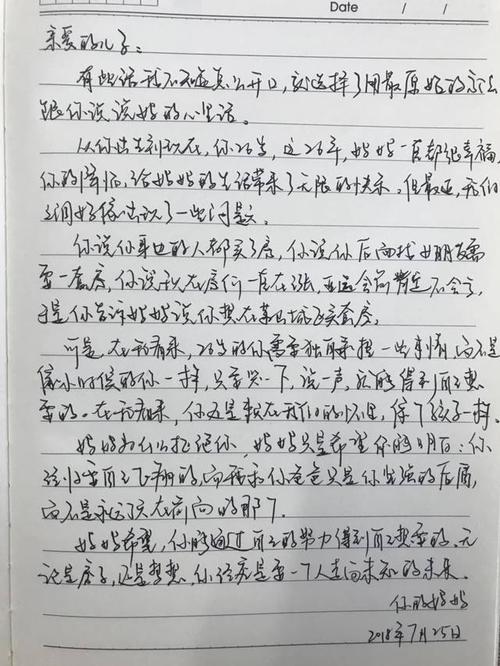 Date / /
亲爱的儿子：
有些话我不知道怎么开口，就选择了用最原始的方式
跟你说说妈的心里话。
从你出生到现在，你26岁，这26年，妈妈一直都很幸福，
你的降临，给妈妈的生活带来了无限的快乐。但最近，我们
之间好像出现了一些问题。
你说你身边的人都买了房，你说你后面找女朋友需
要一套房，你说现在房价一直在涨，再这会
于是你告诉妈妈说你想在某县城买套房。
可是，在我看来，26岁的你需要独自承担一些事情，而不是
像小时候的你一样，只要哭一下，说一声，就能得到自己想
要的。在我看来，你还是赖在我们的怀里，像个孩子一样。
妈妈为什么拒绝你，妈妈只是希望你能明白：你
终归要自己飞翔的，而我和你爸爸只是你坚强的后盾，
而不是永远顶在前面的那个。
妈妈希望，你能通过自己的努力得到自己想要的，无
论是房子，还是梦想，你终究是要一个人走向未知的未来。
你的妈妈
2018年7月25日